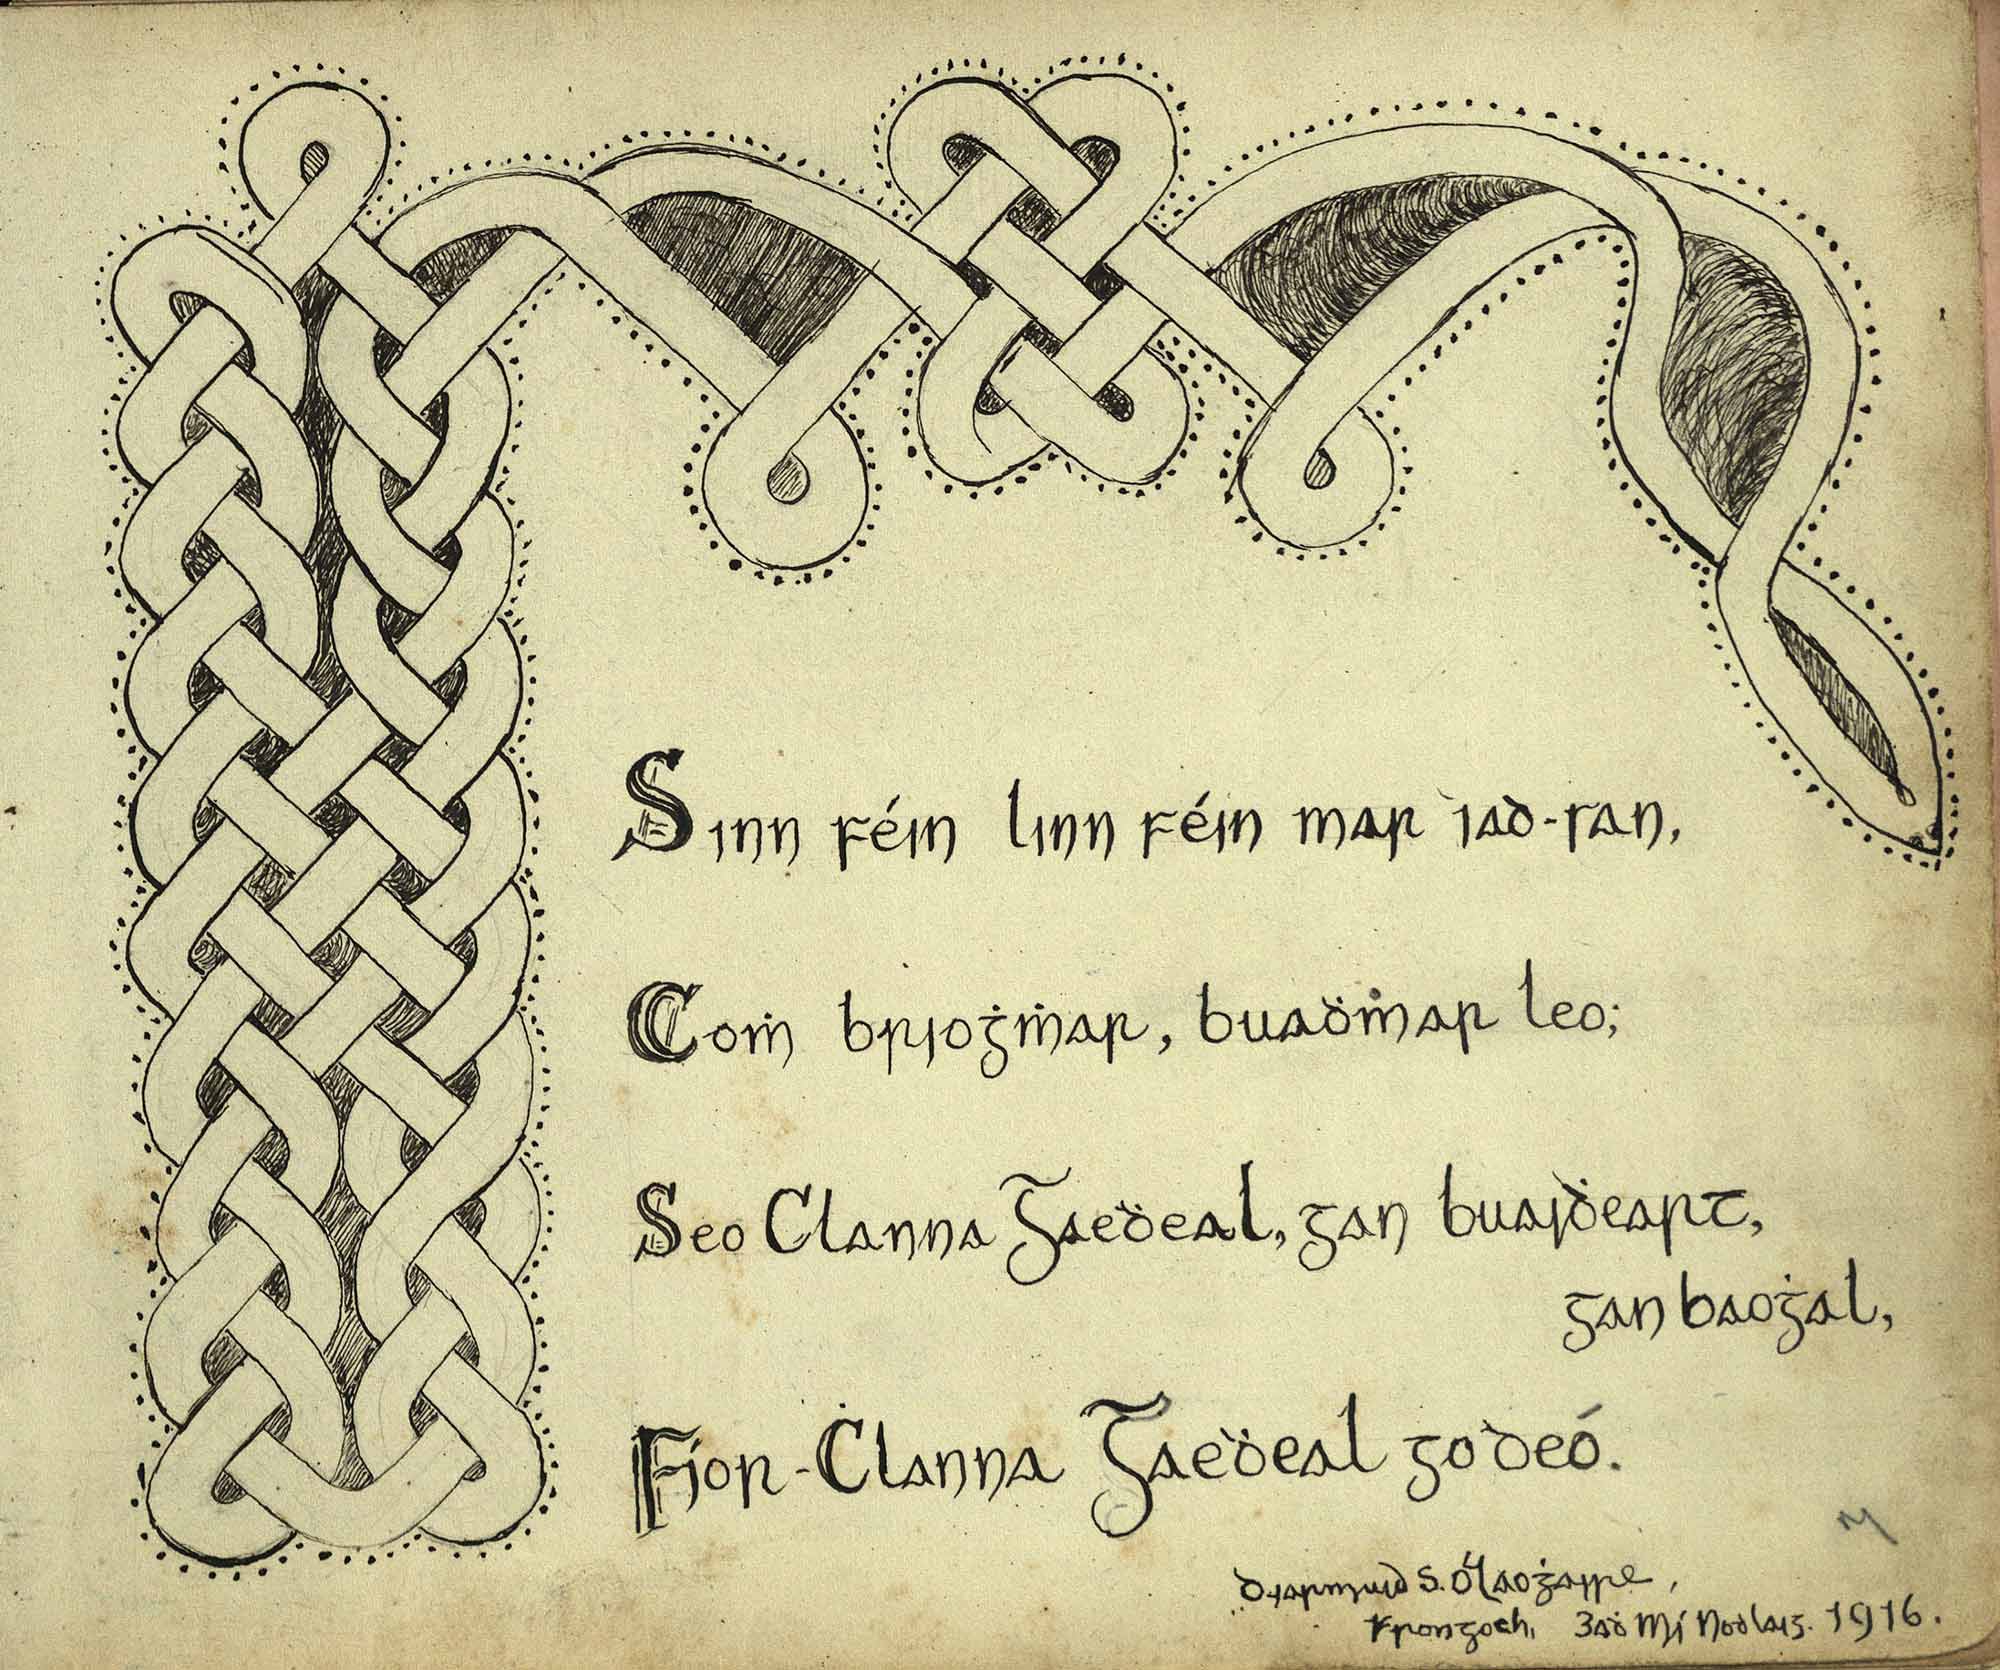 Sinn féin linn féin mar iad-san,
Coṁ brioġṁar, buaḋṁar leo;
Seo Clanna Gaeḋeal, gan buaiḋeart,
gan baoġal,
Fíor-Ċlanna Gaeḋeal go deó.
Diarmuid S. Ó Laoġaire,
Frongoch, 3aḋ Mí Nodlaig. 1916.